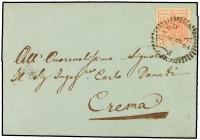 All' Onorevolissimo Signore
Il Sig. Ingegner Carlo Donati
Crema